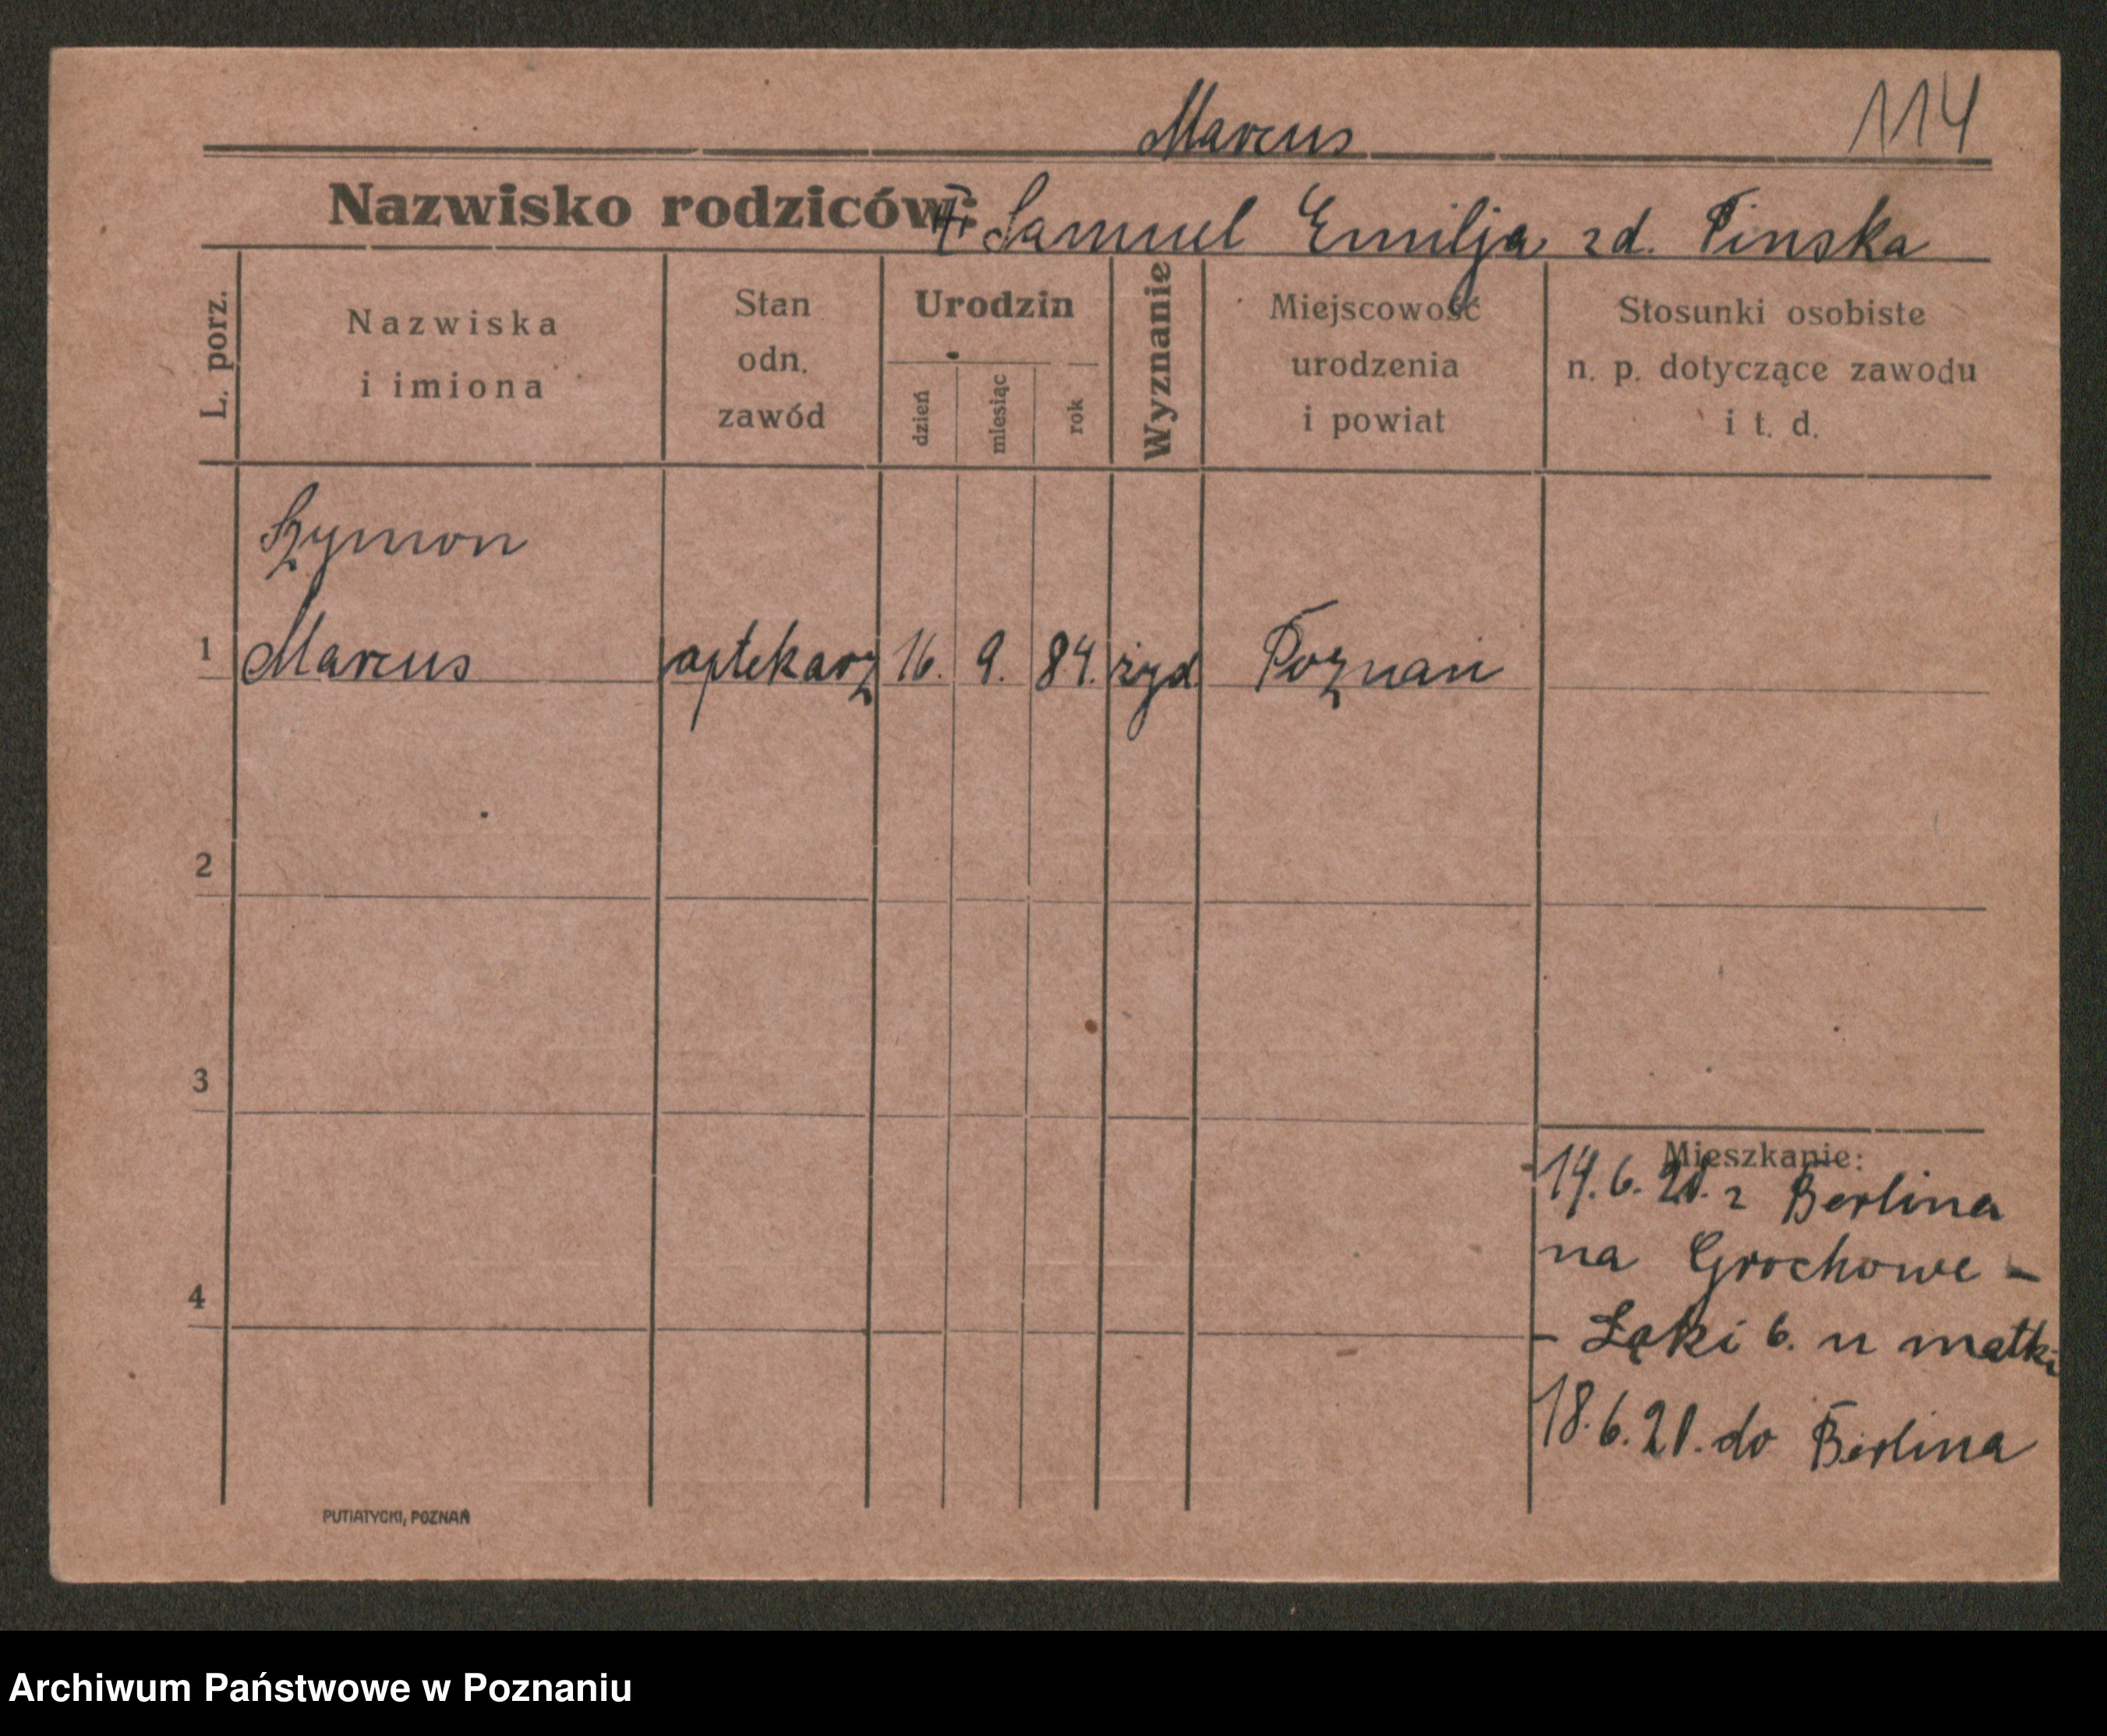 Marcus
114
Nazwisko rodziców: Samuel Emilja zd. Pinska
L. porz.
Nazwiska
i imiona
Stan
odn.
zawód
Urodzin
dzień
miesiąc
rok
Wyznanie
Miejscowość
urodzenia
i powiat
Stosunki osobiste
n. p. dotyczące zawodu
i t. d.
Szymon
1 Marcus aptekarz 16. 9. 84. żyd Poznań
2
3
4
Mieszkanie:
14.6.21. z Berlina
na Grochowe -
- Łąki 6. u matki
18.6.21. do Berlina
PUTIATYCKI, POZNAŃ
Archiwum Państwowe w Poznaniu